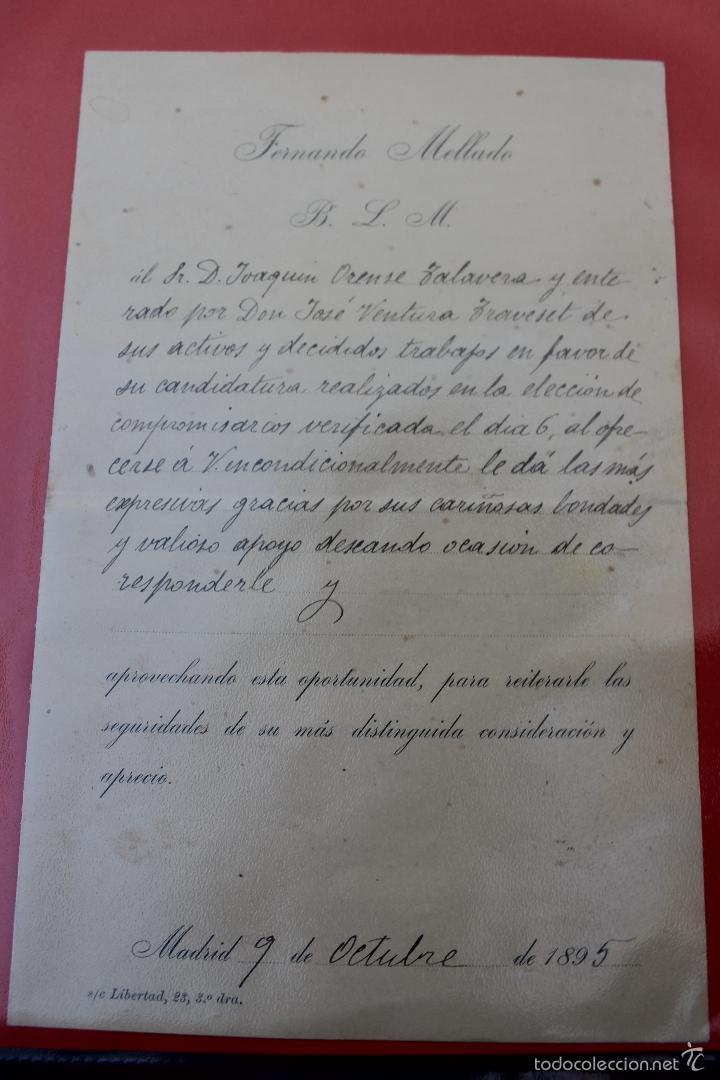 Fernando Mellado
B. L. M.
al Sr. D. Joaquin Orense Talavera y ente
rado por Don José Ventura Traveset de
sus activos y decididos trabajos en favor de
su candidatura realizados en la elección de
compromisarios verificada el dia 6, al ofre-
cerse á V. incondicionalmente le dá las más
expresivas gracias por sus cariñosas bondades
y valioso apoyo deseando ocasión de co-
responderle y
aprovechando esta oportunidad, para reiterarle las
seguridades de su más distinguida consideración y
aprecio.
Madrid 9 de Octubre de 1895
s/c Libertad, 23, 3.º dra.
todocoleccion.net